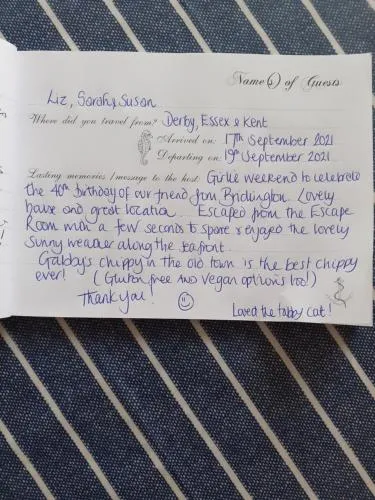 Name(s) of Guests
Liz, Sarah & Susan
Where did you travel from? Derby, Essex & Kent
Arrived on: 17th September 2021
Departing on: 19th September 2021
Lasting memories / message to the host: Girlie weekend to celebrate
the 40th birthday of our friend from Bridlington. Lovely
house and great location. Escaped from the Escape
Room with a few seconds to spare & enjoyed the lovely
sunny weather along the seafront.
Gabby's chippy in the old town is the best chippy
ever! (Gluten free AND vegan options too!)
Thank you!
Loved the tabby cat!